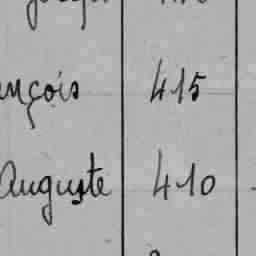 ançois 415
Auguste 410